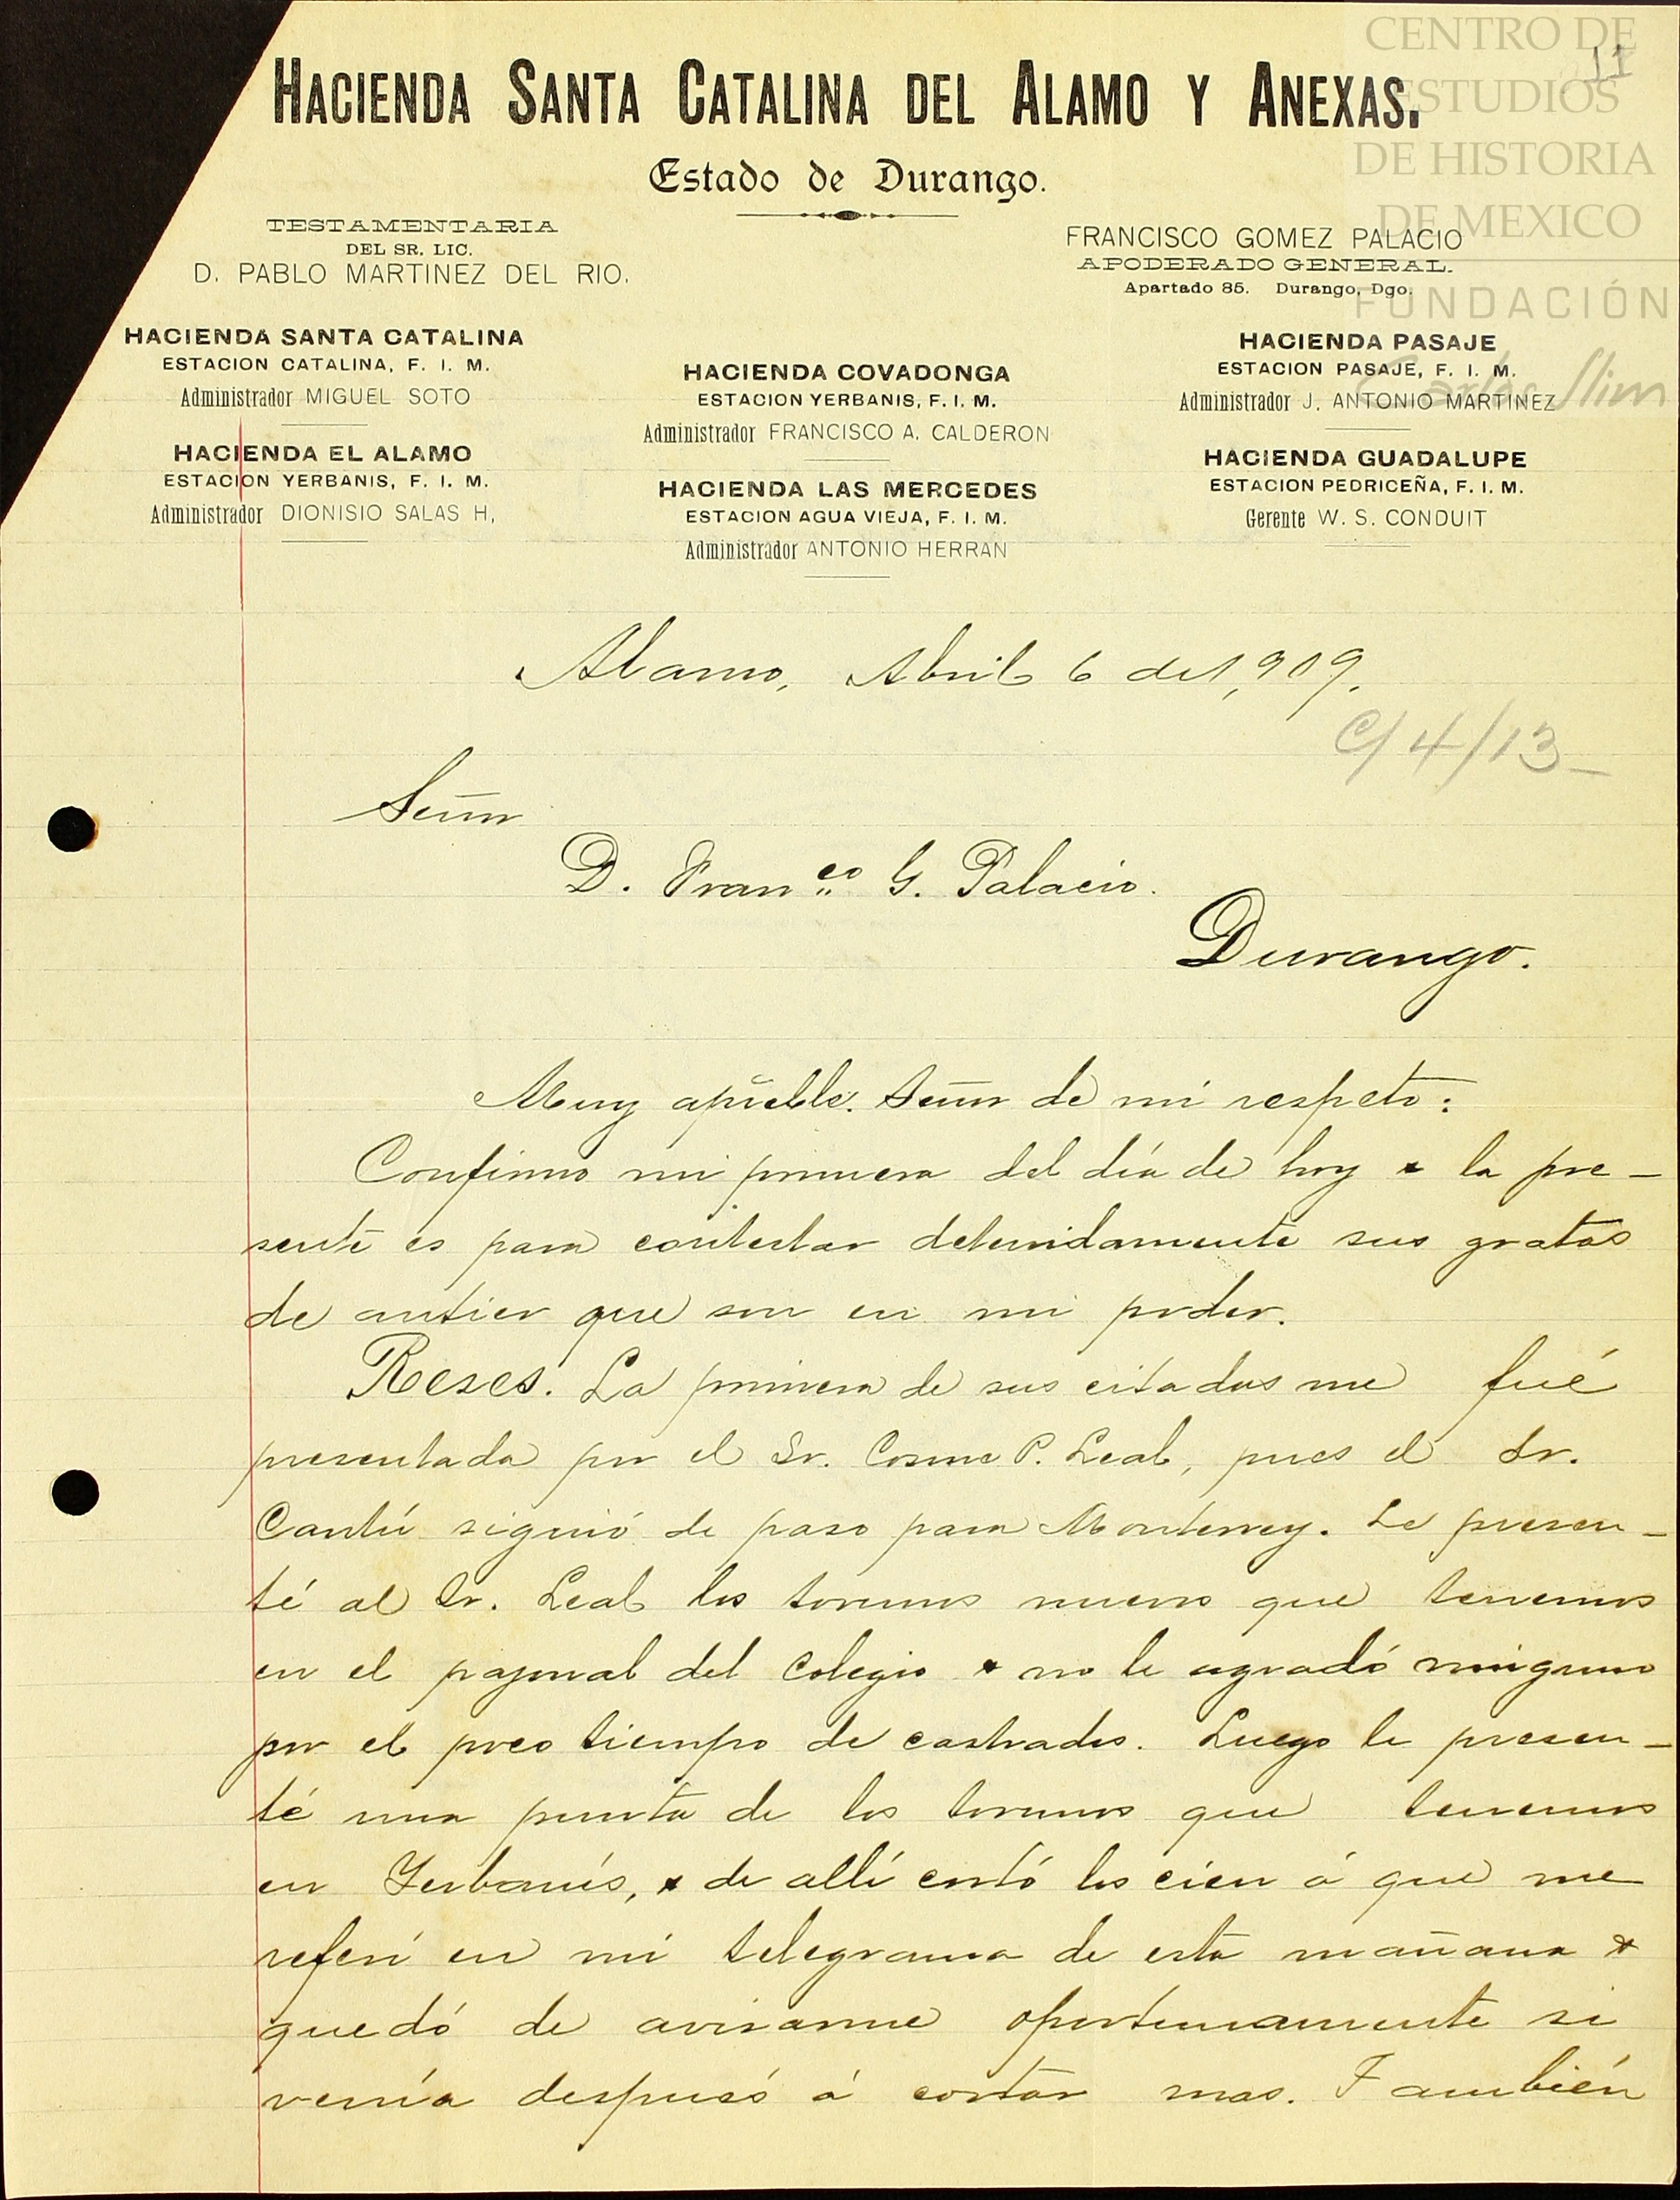 CENTRO DE
ESTUDIOS
DE HISTORIA
DE MEXICO
FUNDACIÓN
Carlos Slim
11
HACIENDA SANTA CATALINA DEL ALAMO Y ANEXAS.
Estado de Durango.
TESTAMENTARIA
DEL SR. LIC.
D. PABLO MARTINEZ DEL RIO.
FRANCISCO GOMEZ PALACIO
APODERADO GENERAL.
Apartado 85. Durango, Dgo.
HACIENDA SANTA CATALINA
ESTACION CATALINA, F. I. M.
Administrador MIGUEL SOTO
HACIENDA EL ALAMO
ESTACION YERBANIS, F. I. M.
Administrador DIONISIO SALAS H,
HACIENDA COVADONGA
ESTACION YERBANIS, F. I. M.
Administrador FRANCISCO A. CALDERON
HACIENDA LAS MERCEDES
ESTACION AGUA VIEJA, F. I. M.
Administrador ANTONIO HERRAN
HACIENDA PASAJE
ESTACION PASAJE, F. I. M.
Administrador J. ANTONIO MARTINEZ
HACIENDA GUADALUPE
ESTACION PEDRICEÑA, F. I. M.
Gerente W. S. CONDUIT
Alamo, Abril 6 de 1,909.
C/4/13-
Señor
D. Franco G. Palacio.
Durango.
Muy apreble. Señor de mi respeto:
Confirmo mi primera del día de hoy & la pre-
sente es para contestar detenidamente sus gratas
de antier que son en mi poder.
Reses. La primera de sus citadas me fué
presentada por el Sr. Cosme P. Leal, pues el Sr.
Cantú siguió de paso para Monterrey. Le presen-
té al Sr. Leal los torunos nuevos que tenemos
en el pajonal del Colegio & no le agradó ninguno
por el poco tiempo de castrados. Luego le presen-
té una punta de los torunos que tenemos
en Yerbanís, & de allí cortó los cien á que me
referí en mi telegrama de esta mañana &
quedó de avisarme oportunamente si
venía después á cortar mas. También